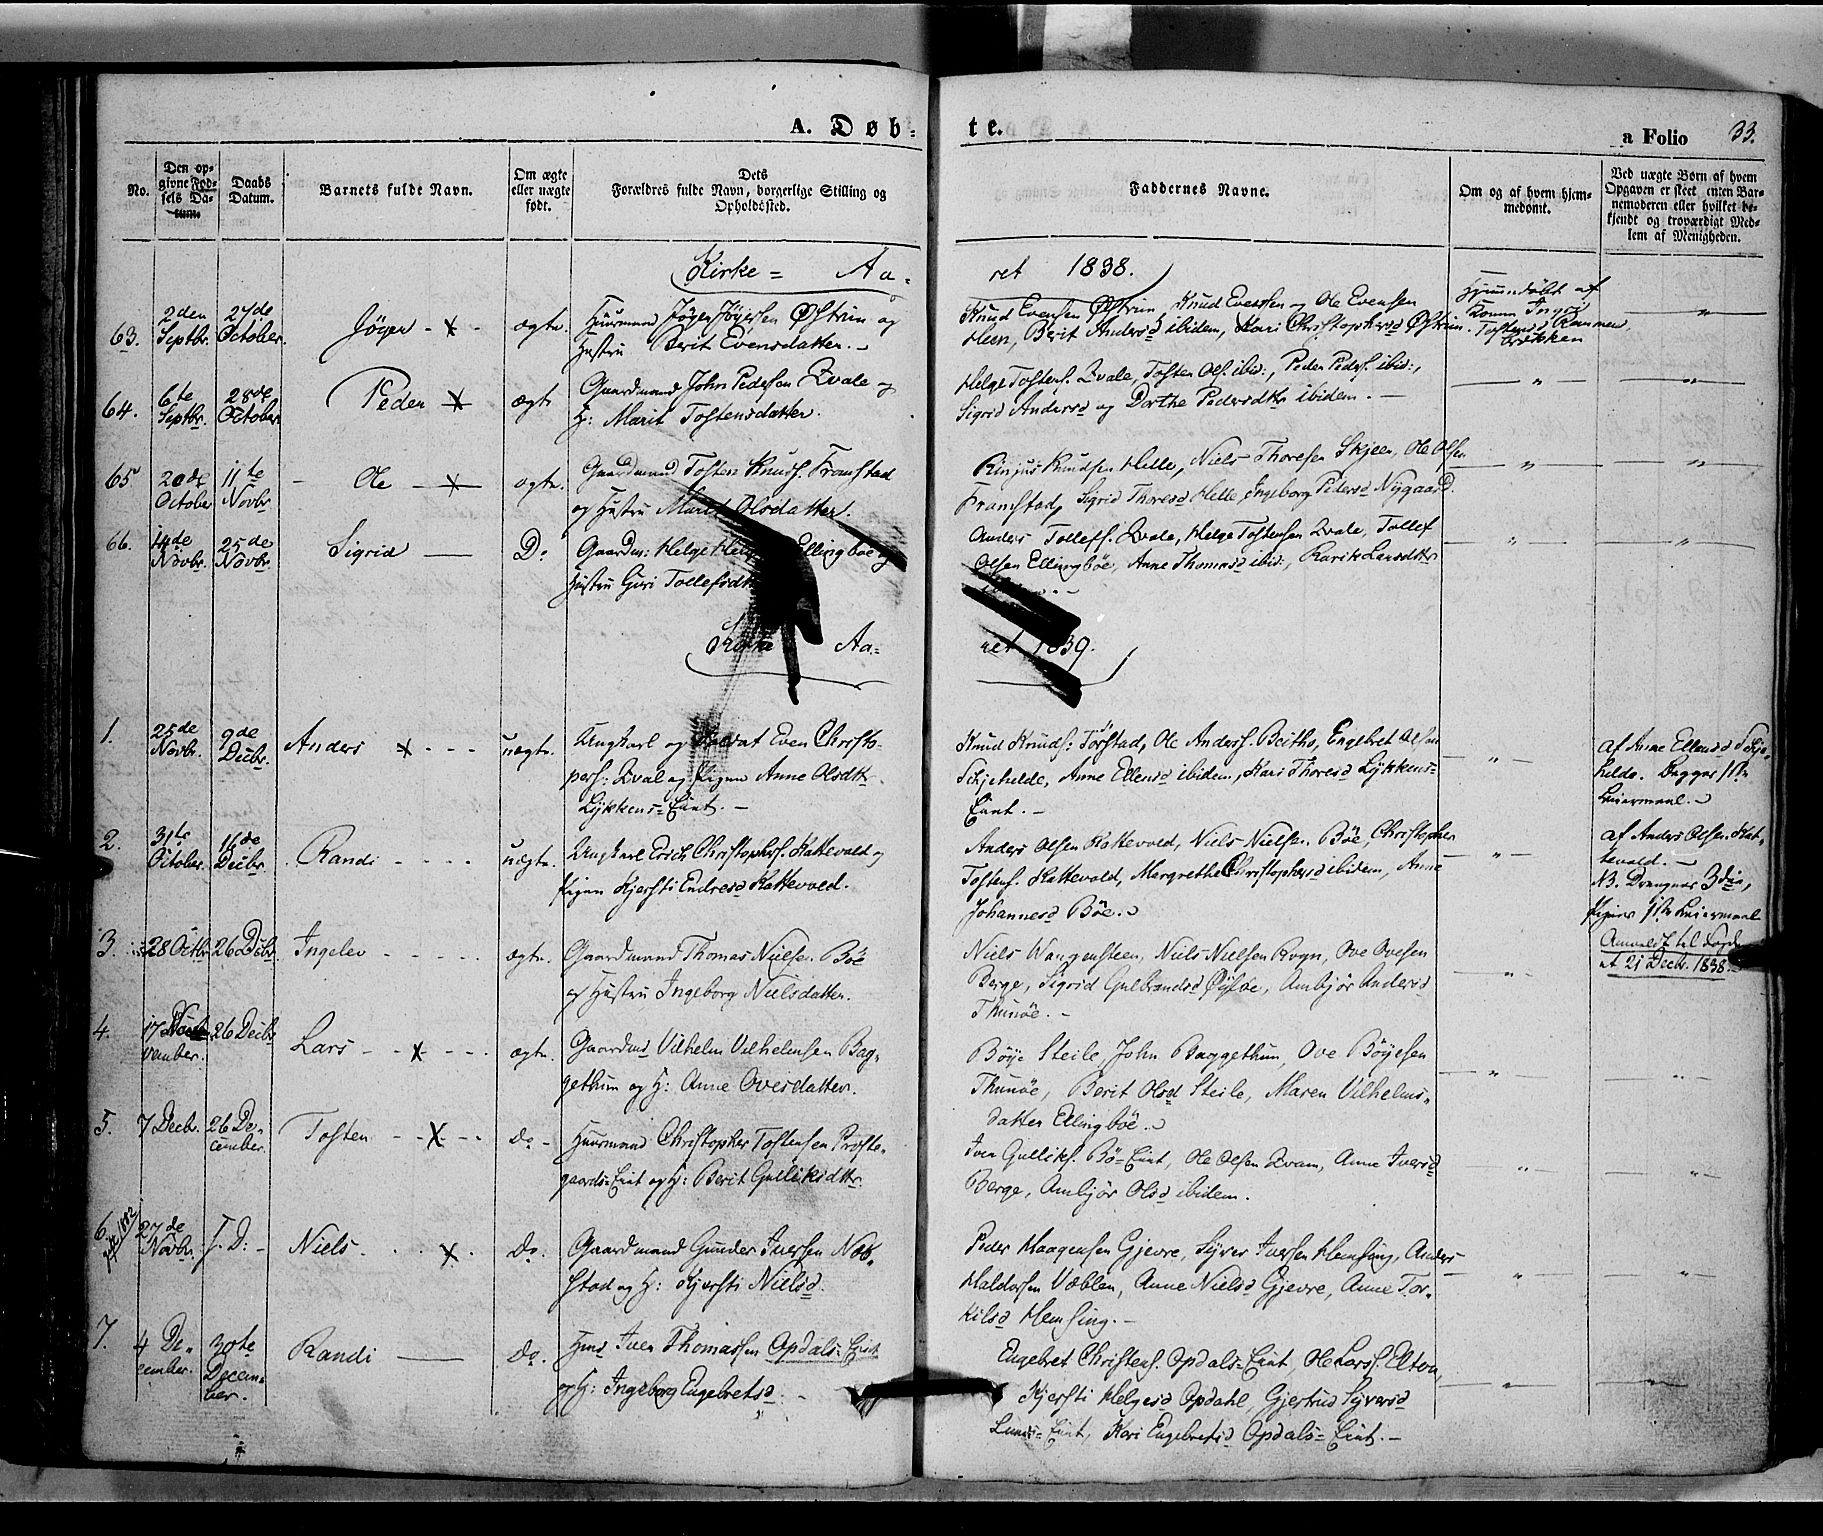 A. Døb=
te.
a Folio 33.
No.
Den op=
givne Fød=
sels Da=
tum.
Daabs
Datum.
Barnets fulde Navn.
Om ægte
eller uægte
født.
Dets
Forældres fulde Navn, borgerlige Stilling og
Opholdssted.
Faddernes Navne.
Om og af hvem hjem=
medøbt.
Ved uægte Børn af hvem
Opgaven er skeet enten Bar=
nemoderen eller hvilket be=
kjendt og troværdigt Med=
lem af Menigheden.
Kirke= Aa=
ret 1838.
63.
2den
Septbr.
27de
October.
Jøger - x -
ægte.
Huusmand Jøger Jøgersen Østrim og
Hustru Berit Evensdatter. -
Knud Evensen Østrim, Knud Evensen og Ole Evensen
Heen, Berit Andersd ibidem, Kari Christophersd Østrim.
Hjemmedøbt af
Tostensd
brækken
64.
6te
Septbr.
28de
October
Peder x
ægte
Gaardmand John Pedersen Qvale og
H: Marit Tostensdatter.
Helge Tostens. Qvale, Tosten Ols. ibid:, Peder Peders. ibid:,
Sigrid Andersd og Dorthe Pedersdtr ibidem. -
65
20de
October
11te
Novbr.
Ole - x -
ægte.
Gaardmand Tosten Knuds. Framstad
og Hustru Marit Olsdatter.
Knudsen Helle, Niels Thoresen Skjeen, Ole Olsen
Framstad, Sigrid Thoresd Helle, Ingeborg Pedersd Nygaard.
66.
14de
Novbr.
25de
Novbr.
Sigrid -
Do
Gaardm: Helge Ellingbøe og
Hustru Guri
Anders Tollefs. Qvale, Helge Tostensen Qvale, Tollef
Olsen Ellingbøe, Anne Thomasd ibid:, Marit Larsdtr
Kirke Aa=
ret 1839.
1.
25de
Novbr.
9de
Decbr.
Anders x - - -
uægte.
Ungkarl og Soldat Even Christo=
pers: Qval og Pigen Anne Olsdtr.
Lykkens=Eiet. -
Knud Knuds: Tørstad, Ole Anders. Beitho, Engebret Olsen
Skjehelde, Anne Ellensd ibidem, Kari Thoresd Lykkens=
Eiet. -
af Anne Ellensd Skje=
helde. Begges 1ste
Leiermaal. -
2.
31te
October.
16de
Decbr.
Randi - - - -
uægte.
Ungkarl Erich Christophers. Kattevold og
Pigen Kjersti Endresd Kattevold.
Anders Olsen Kattevold, Niels Nielsen Bøe, Christopher
Tostens. Kattevold, Margrethe Christophersd ibidem, Anne
Johannesd Bøe.
af Anders Olsen Kat=
tevold. -
NB. Drengens 3die,
Pigens 1ste Leiermaal
Anmeldt til Fogde
21 Decbr. 1838.
3.
28 Octbr.
26 Decbr.
Ingelev - - - - -
ægte.
Gaardmand Thomas Nielsen Bøe
og Hustru Ingeborg Nielsdatter.
Niels Wangensteen, Niels Nielsen Rogn, Ove Ovesen
Berge, Sigrid Gulbrandsd Øyloe, Ambjør Andersd
Thunøe. -
4.
17 No
vember.
26 Decbr
Lars - - x - - -
ægte.
Gaardmd Vilhelm Vilhelmsen Bag=
gethun og H: Anne Ovesdatter.
Bøye Steile, John Baggethun, Ove Bøyesen
Thunøe, Berit Olsd Steile, Maren Vilhelms=
datter Ellingbøe.
5.
7 Decbr.
26 De=
cember.
Tosten - - x - - -
Do -
Huusmand Christopher Tostensen Præste=
gaards=Eiet og H: Berit Gulliksdtr.
Iver Gulliks. Bø=Eiet, Ole Olsen Qvam, Anne Iversd
Berge, Ambjør Olsd ibidem.
6.
27de
Novbr.
J. D: -
Niels - . . x .
Do.
Gaardmand Gunder Iversen Næb=
stad og H: Kjersti Nielsd.
Peder Haagensen Gjevre, Syver Iversen Hemsing, Anders
Haldorsen Væblen, Anne Nielsd Gjevre, Anne Tor=
kilsd Hemsing. -
7.
4 De=
cember.
30te
Decem=
ber.
Randi -
Do.
Hmd Iver Thomassen Opdals=Eiet
og H: Ingeborg Engebretsd.
Engebret Christens. Opdals=Eiet, Ole Lars. Elton,
Kjersti Helgesd Opdahl, Gjertrud Syversd
Lunds=Eiet, Kari Engebretsd Opdals=Eiet. -